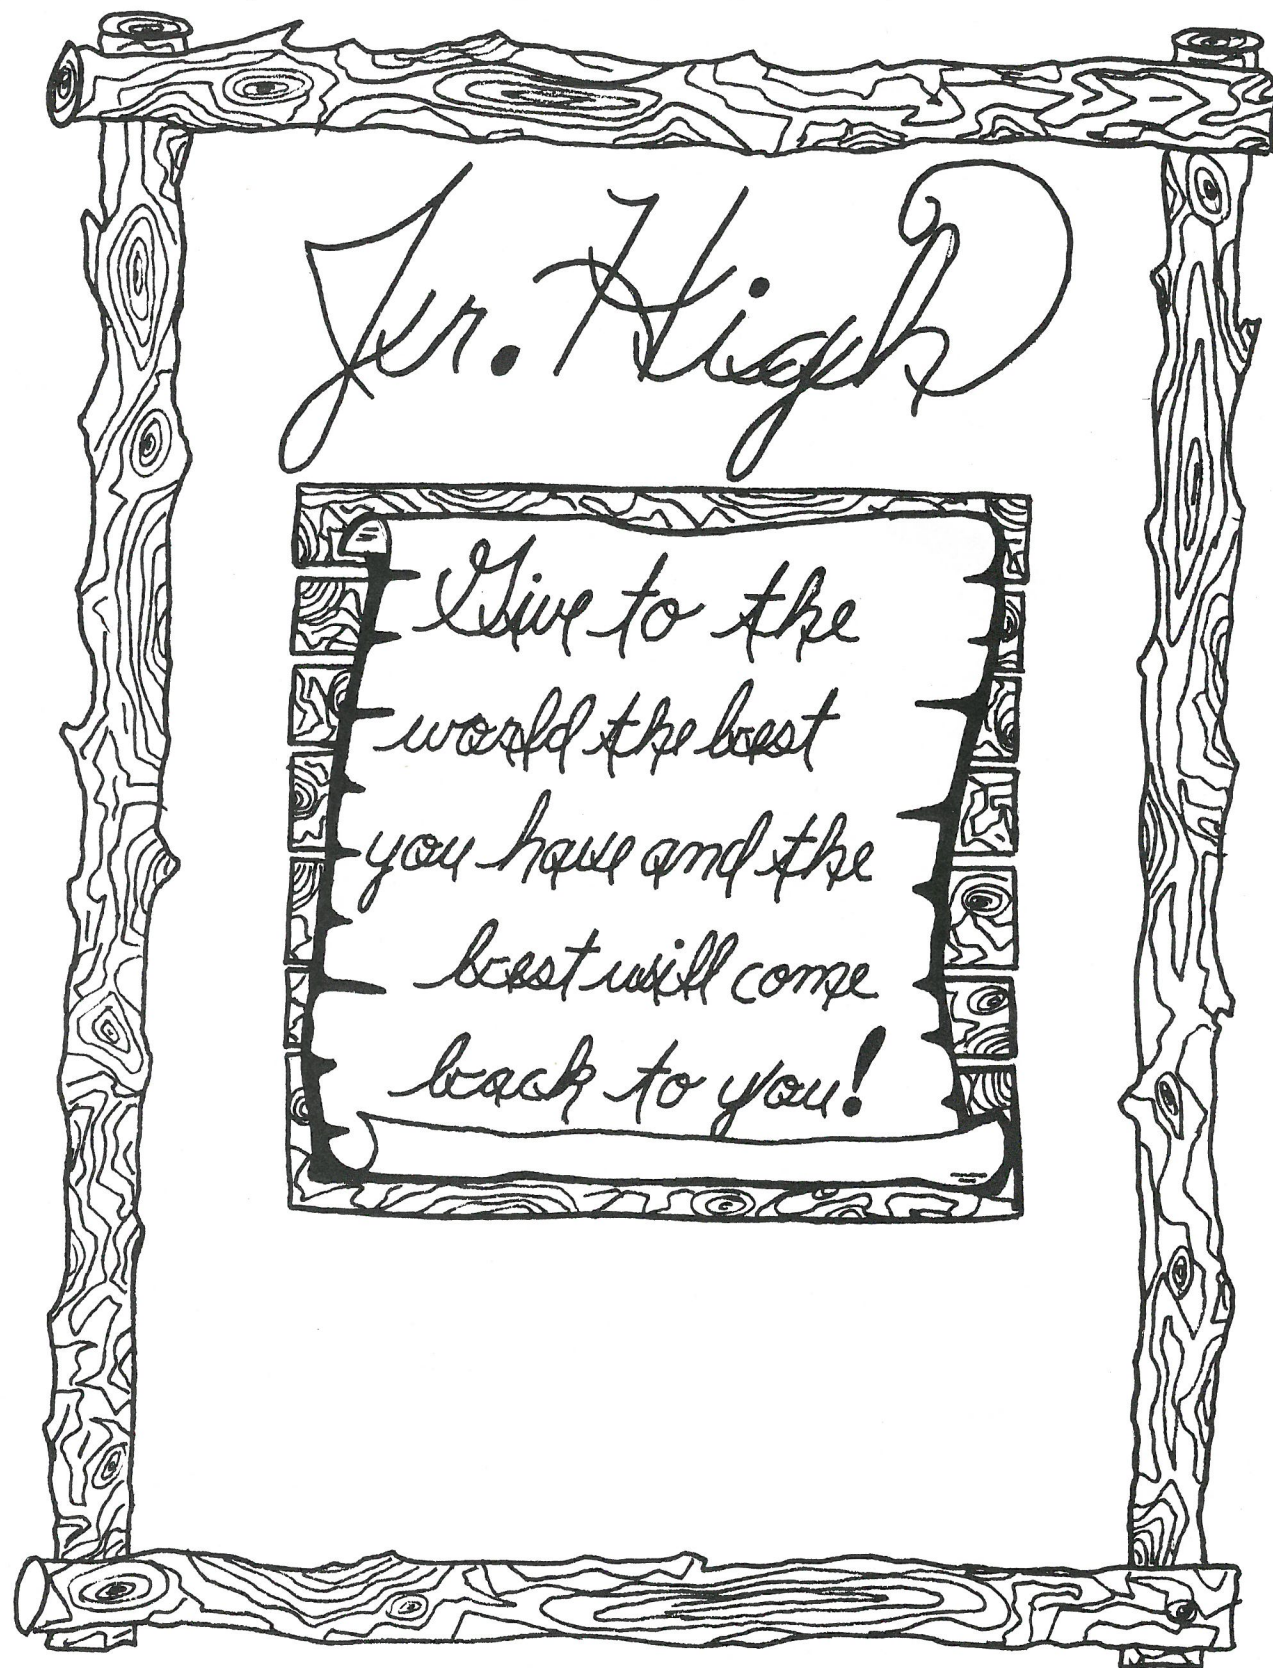 Jr. High
Give to the
world the best
you have and the
best will come
back to you!